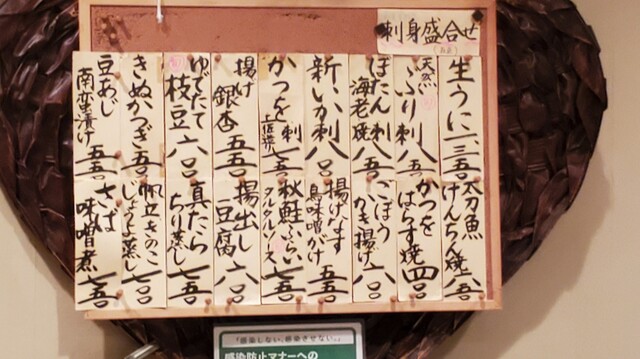 刺身盛合せ
生うに 一、三五〇
天然ぶり刺 八五〇
ぼたん海老 刺 焼 八五〇
新いか刺 八〇〇
かつを 刺 土佐造り 七五〇
揚げ銀杏 五五〇
ゆでたて枝豆 六八〇
きぬかつぎ 五五〇
豆あじ南蛮漬け 五五〇
太刀魚けんちん焼 八五〇
かつをはらす焼 四八〇
ごぼうかき揚げ 六八〇
揚げなす鳥味噌がけ 五五〇
秋鮭ふらい タルタルソース 七五〇
揚出し豆腐 六八〇
真たらちり蒸し 七五〇
帆立きのこじょうよ蒸し 七八〇
さば味噌煮 七五〇
「感染しない、感染させない。」
感染防止マナーへの